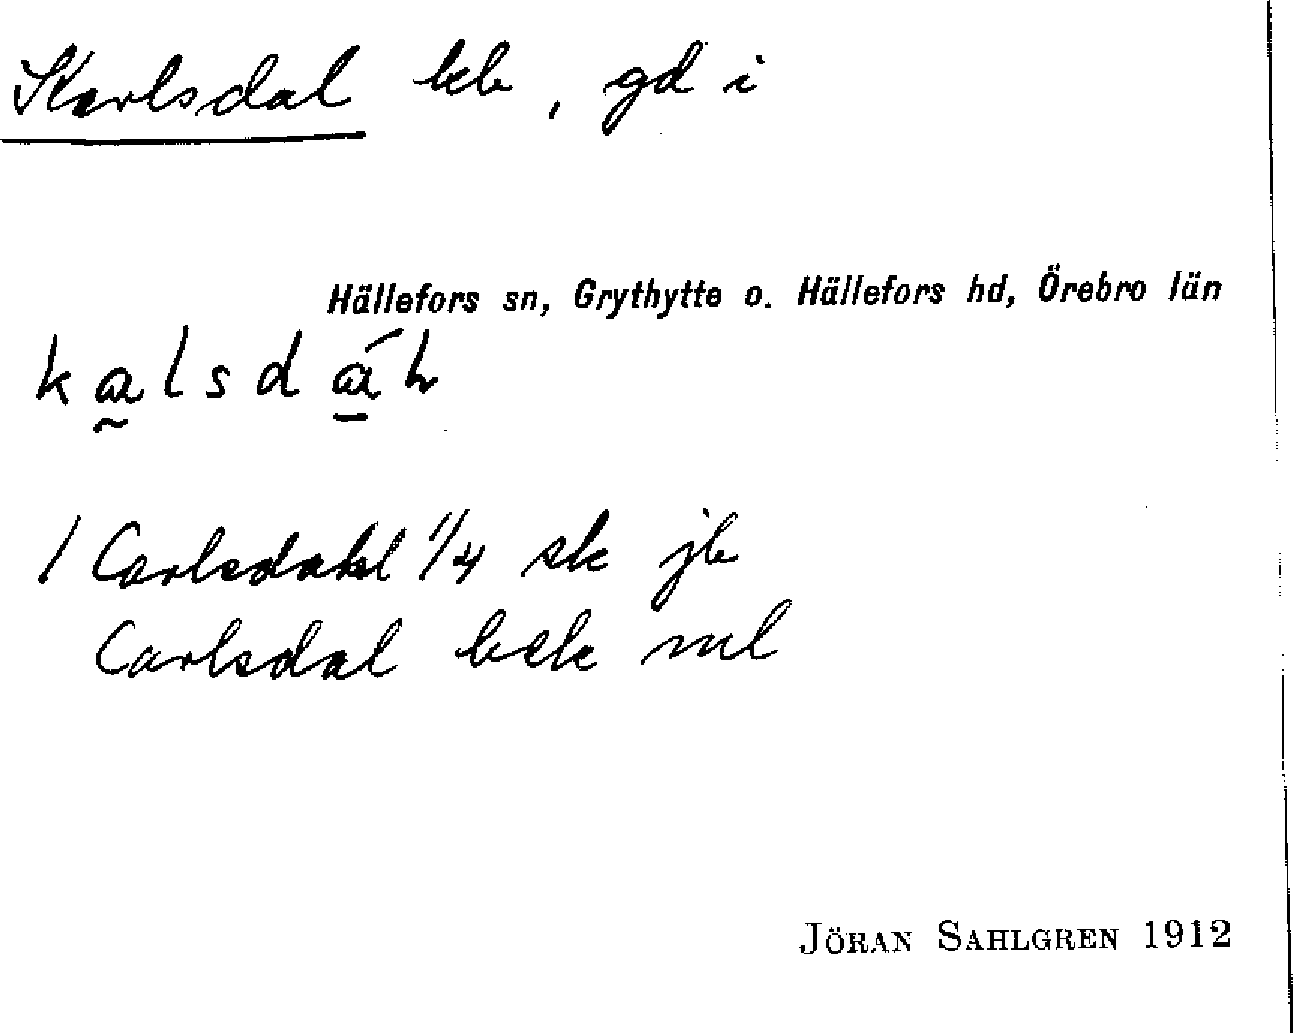 Karlsdal bb, gd i
Hällefors sn, Grythytte o. Hällefors hd, Örebro län
kalsdá
1 Carlsdahl 1/4 sk jb
Carlsdal bsk ml
JÖRAN SAHLGREN 1912